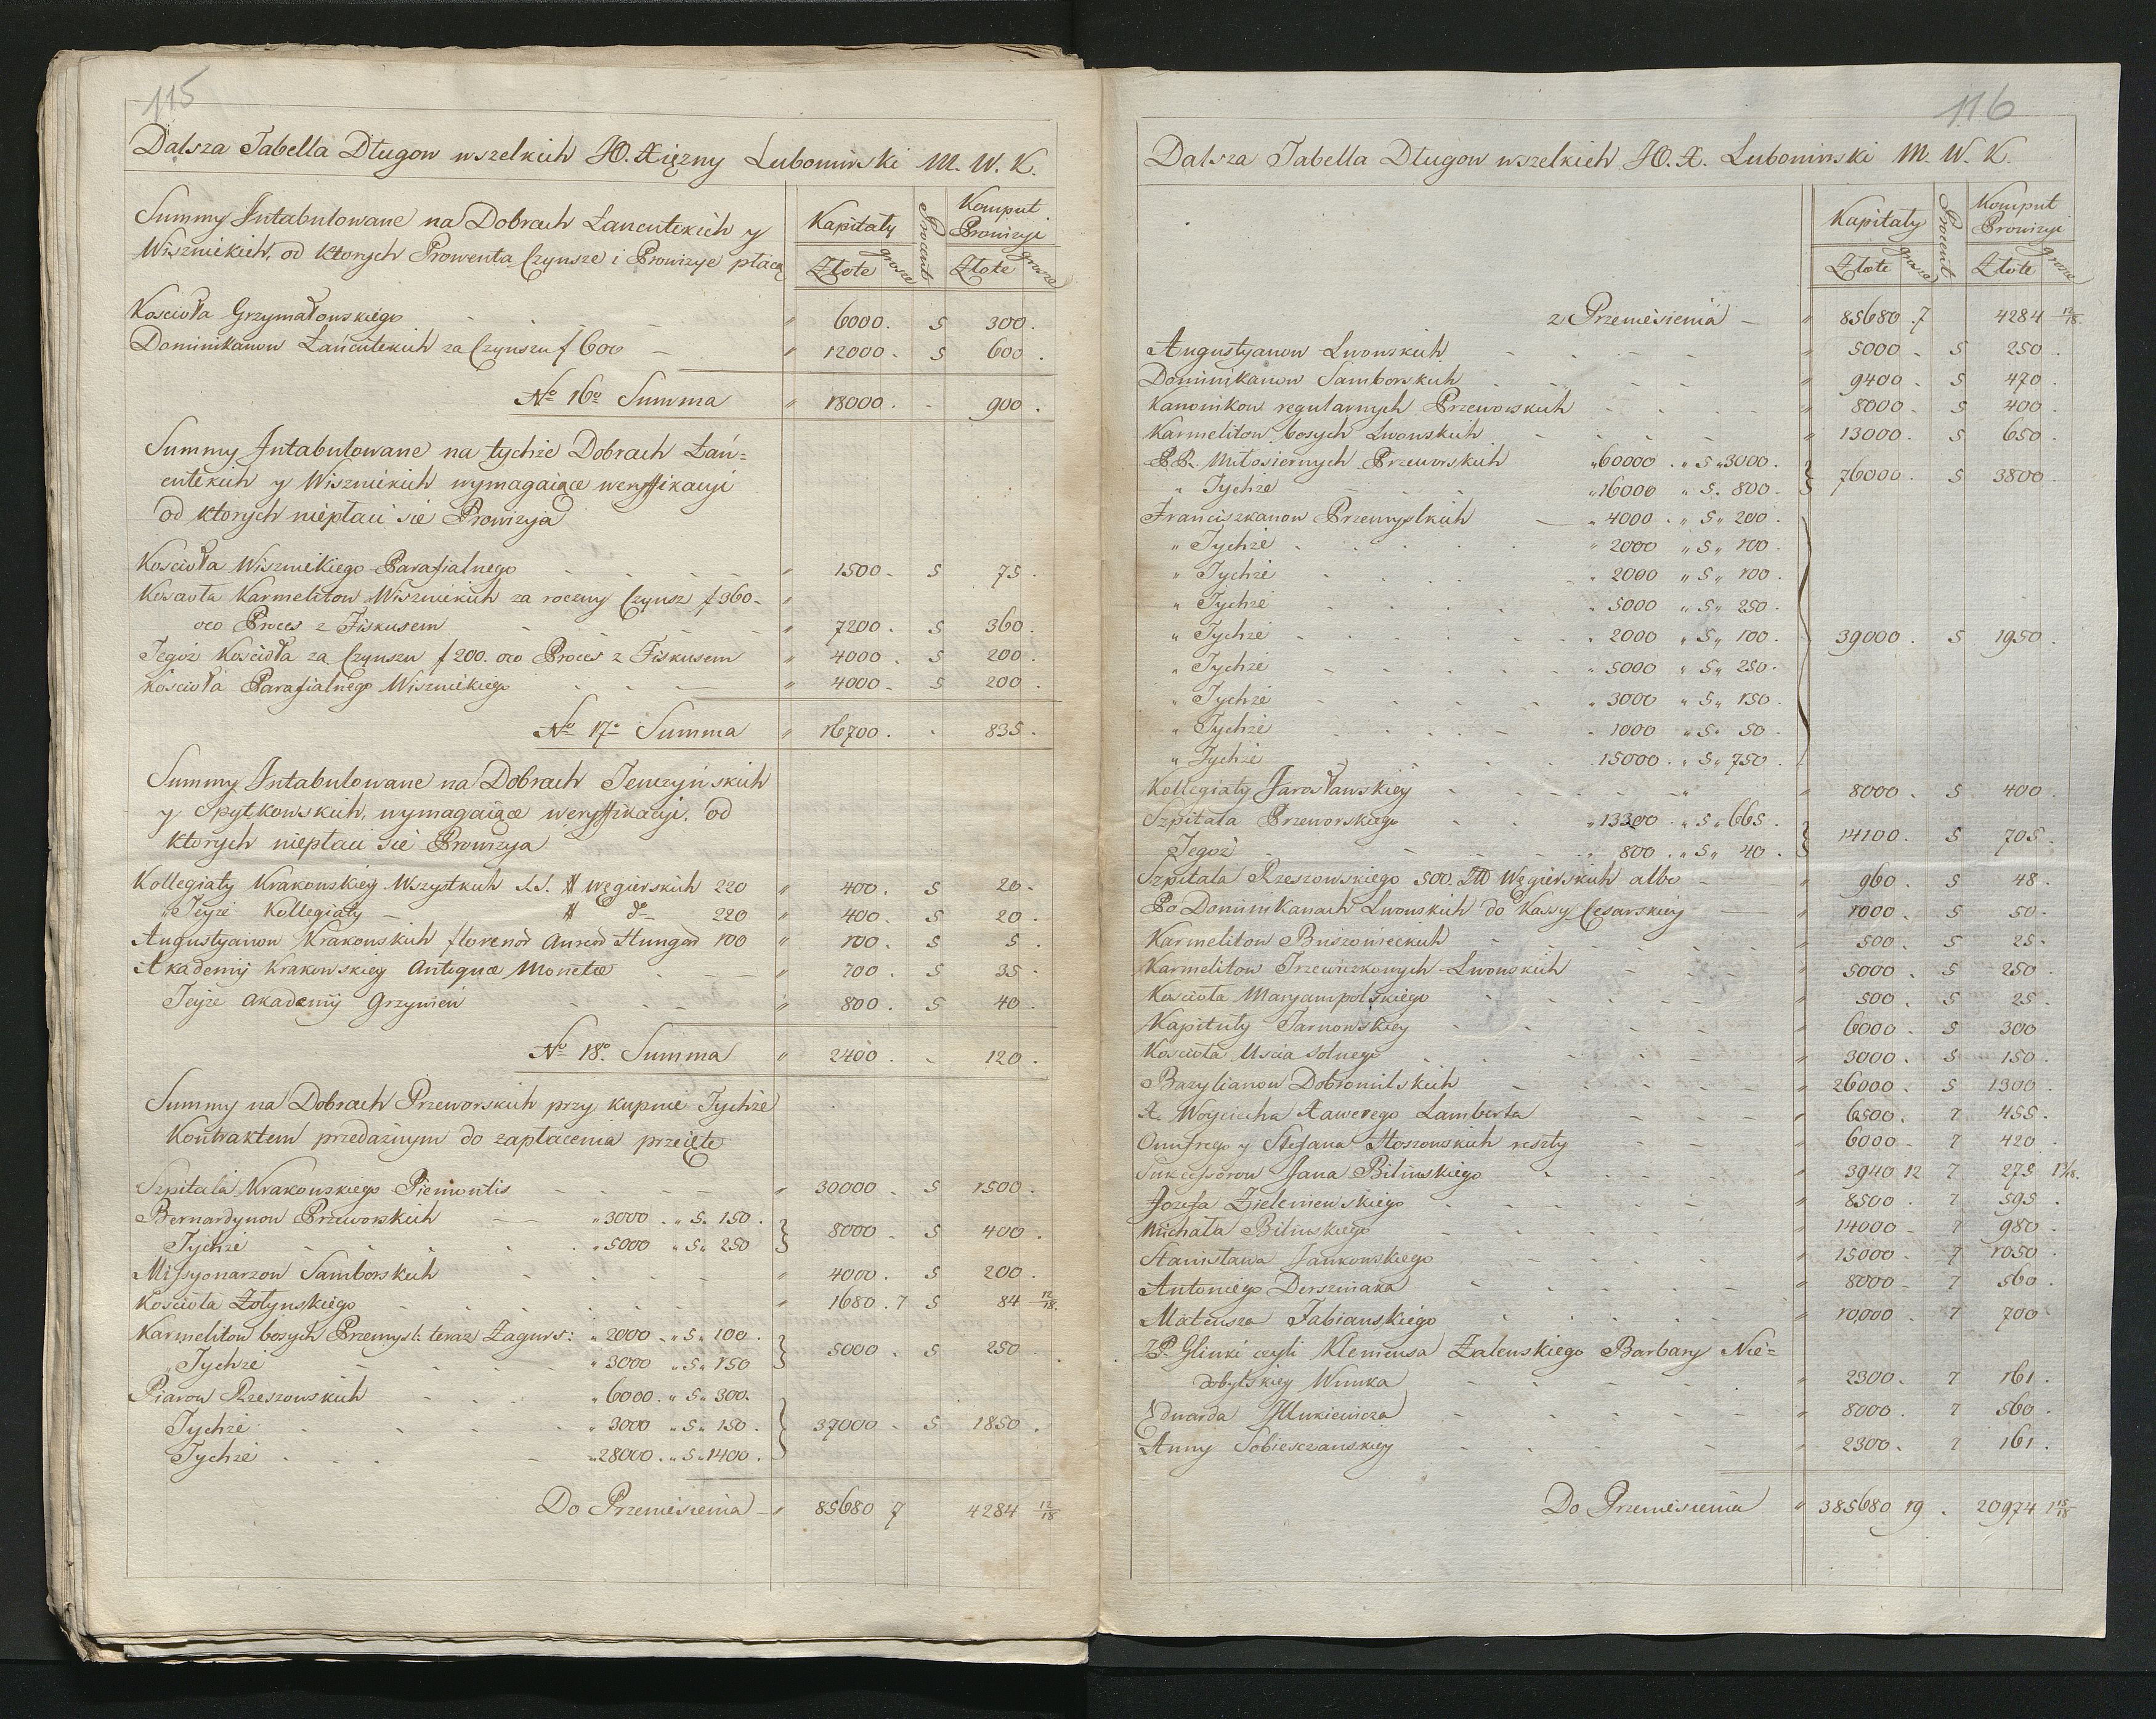 115
Dalsza Tabella Długow wszelkich JO. Xiężny Lubomirski M. W. K.
Summy Intabulowane na Dobrach Łancutskich y
Wisznickich, od ktorych Prowenta Czynsze i Prowizye płacą
Kapitały Procent Komput Prowizyi
Złote grosze Złote grosze
Kościoła Grzymałowskiego " 6000. 5 300.
Dominikanow Łańcutskich za Czynszu f 600 — " 12000. 5 600.
No 16o Summa " 18000. - 900.
Summy Intabulowane na tychże Dobrach Łań=
cutskich y Wisznickich wymagaiące weryffikacyi
od ktorych niepłaci sie Prowizya
Kościoła Wisznickiego Parafialnego " 1500. 5 75.
Kościoła Karmelitow Wisznickich za roczny Czynsz f 360. "
oco Proces z Fiskusem " 7200. 5 360.
Tegoż Kościoła za Czynszu f 200. oco Proces z Fiskusem " 4000. 5 200.
Kościoła Parafialnego Wisznickiego " 4000. 5 200.
No 17o Summa " 16700. . 835.
Summy Intabulowane na Dobrach Tenczyńskich
y Spytkowskich, wymagaiące weryffikacyi, od
ktorych niepłaci sie Prowizya
Kollegiaty Krakowskiey Wszystkich SS. # węgierskich 220 " 400. 5 20.
" Teyże Kollegiaty — # do 220 " 400. 5 20.
Augustyanow Krakowskich florenor Aureor Hungar 100 " 100. 5 5.
Akademij Krakowskiey Antiquæ Monetæ " 700. 5 35.
Teyże Akademij Grzywień " 800. 5 40.
No 18o. Summa " 2400. - 120.
Summy na Dobrach Przeworskich przy kupnie Tychże
Kontraktem przedażnym do zapłacenia przeięte
Szpitala Krakowskiego Piemontis " 30000. 5 1500.
Bernardynow Przeworskich " 3000. " 5. 150. } 8000. 5 400.
Tychże " 5000 " 5 " 250
Missyonarzow Samborskich " 4000. 5 200.
Kościoła Żołynskiego " 1680. 7 5 84 12/18.
Karmelitow bosych Przemysl: teraz Zagurs: " 2000 " 5 " 100. } 5000. 5 250
" Tychże " 3000 " 5 " 150
Piarow Rzeszowskich " 6000. " 5 " 300.
Tychże " 3000 " 5 " 150. } 37000. 5 1850.
Tychże " 28000. " 5 " 1400.
Do Przeniesienia — " 85680 7 4284 12/18
116
Dalsza Tabella Długow wszelkich JO. X. Lubomirski M. W. K.
Kapitały Procent Komput Prowizyi
Złote grosze Złote grosze
z Przeniesienia — " 85680. 7 4284 12/18.
Augustyanow Lwowskich " 5000. 5 250.
Dominikanow Samborskich " 9400. 5 470.
Kanonikow regularnych Przeworskich " 8000. 5 400.
Karmelitow bosych Lwowskich " 13000. 5 650.
PP. Miłosiernych Przeworskich " 60000. " 5 " 3000. } 76000. 5 3800.
" Tychże " 16000 " 5. 800.
Franciszkanow Przemyslkich — " 4000. " 5 " 200.
" Tychże " 2000 " 5 " 100.
" Tychże " 2000 " 5 " 100.
" Tychże " 5000 " 5 " 250.
" Tychże " 2000 " 5 " 100. } 39000. 5 1950.
" Tychże " 5000 " 5 " 250.
" Tychże " 3000 " 5 " 150.
" Tychże " 1000 " 5 " 50.
" Tychże 15000. " 5 " 750.
Kollegiaty Jarosławskiey " 8000. 5 400.
Szpitala Przeworskiego " 13300. " 5 " 665. } 14100. 5 705.
Tegoż " 800. " 5 " 40.
Szpitala Rzeszowskiego 500. Węgierskich albo " 960. 5 48.
Po Dominikanach Lwowskich do Kassy Cesarskiey " 1000. 5 50.
Karmelitow Buszowieckich " 500. 5 25.
Karmelitow Trzewiczkowych Lwowskich " 5000. 5 250.
Kościoła Maryampolskiego " 500. 5 25.
Kapituły Tarnowskiey " 6000. 5 300
Kościoła Uscia Solnego " 3000. 5 150.
Bazylianow Dobromilskich " 26000. 5 1300.
X. Woyciecha Xawerego Lamberta " 6500. 7 455.
Onufrego y Stefana Hoszowskich reszty " 6000. 7 420.
Sukcessorow Jana Bilinskiego " 3940 12 7 275
Jozefa Zieleniewskiego " 8500. 7 595.
Michała Bilinskiego " 14000. 7 980.
Stanisława Jankowskiego " 15000. 7 1050.
Antoniego Derszniaka " 8000. 7 560.
Mateusza Fabianskiego " 10,000. 7 700
JP. Glinki czyli Klemensa Zalenskiego Barbary Nie=
dobylskiey Wnuka " 2300. 7 161.
Eduarda Ilukiewicza " 8000. 7 560.
Anny Sobieszczanskiey " 2300. 7 161.
Do Przeniesienia " 385680 19. 20974